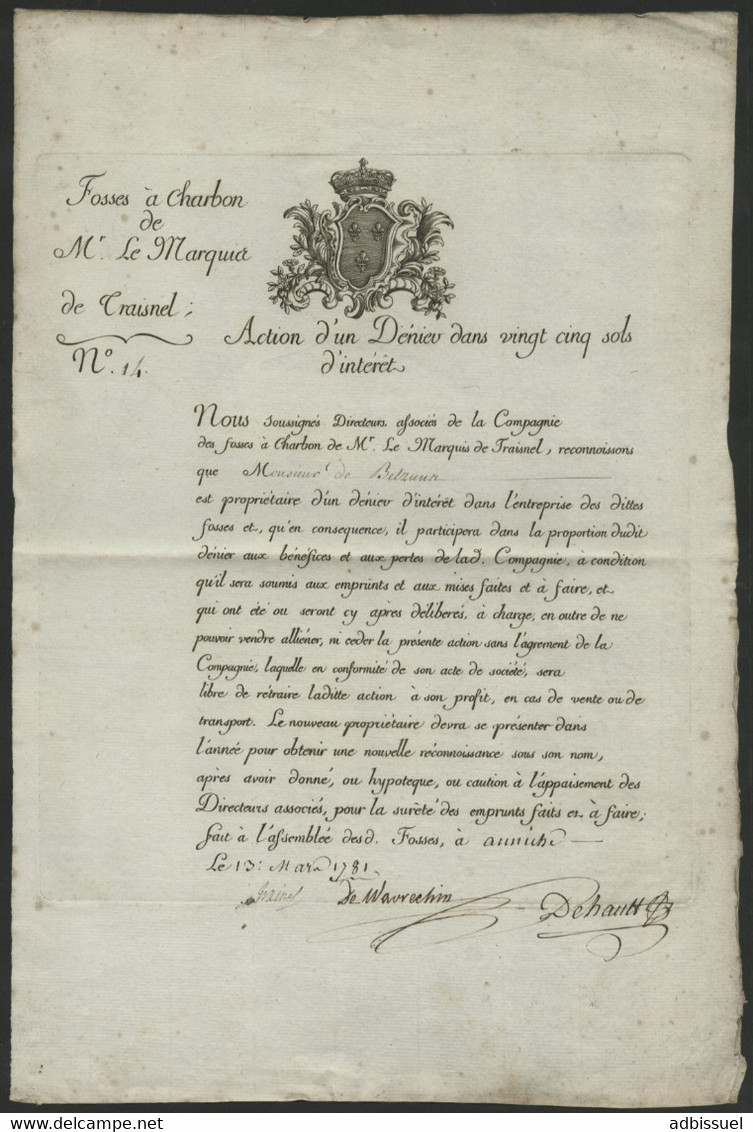 Fosses à Charbon
de
Mr. Le Marquis
de Traisnel;
No. 14.
Action d'un Dénier dans vingt cinq sols
d'intérêt
Nous soussignés Directeurs associés de la Compagnie
des fosses à Charbon de Mr. Le Marquis de Traisnel, reconnoissons
que Monsieur de
est propriétaire d'un dénier d'intérêt dans l'entreprise des dittes
fosses et, qu'en consequence, il participera dans la proportion dudit
dénier aux bénéfices et aux pertes de lad. Compagnie, à condition
qu'il sera soumis aux emprunts et aux mises faites et à faire, et
qui ont eté ou seront cy apres déliberés, à charge, en outre de ne
pouvoir vendre alliéner, ni ceder la présente action sans l'agrement de la
Compagnie, laquelle en conformité de son acte de société, sera
libre de rétraire laditte action à son profit, en cas de vente ou de
transport. Le nouveau propriétaire devra se présenter dans
l'année pour obtenir une nouvelle réconnoissance sous son nom,
après avoir donné, ou hypoteque, ou caution à l'áppaisement des
Directeurs associés, pour la sureté des emprunts faits et à faire;
fait à l'assemblée desd. Fosses, à anniche
Le 13: Mars 1781
Traisnel De Wavrechin Dehault
www.delcampe.net
adbissuel